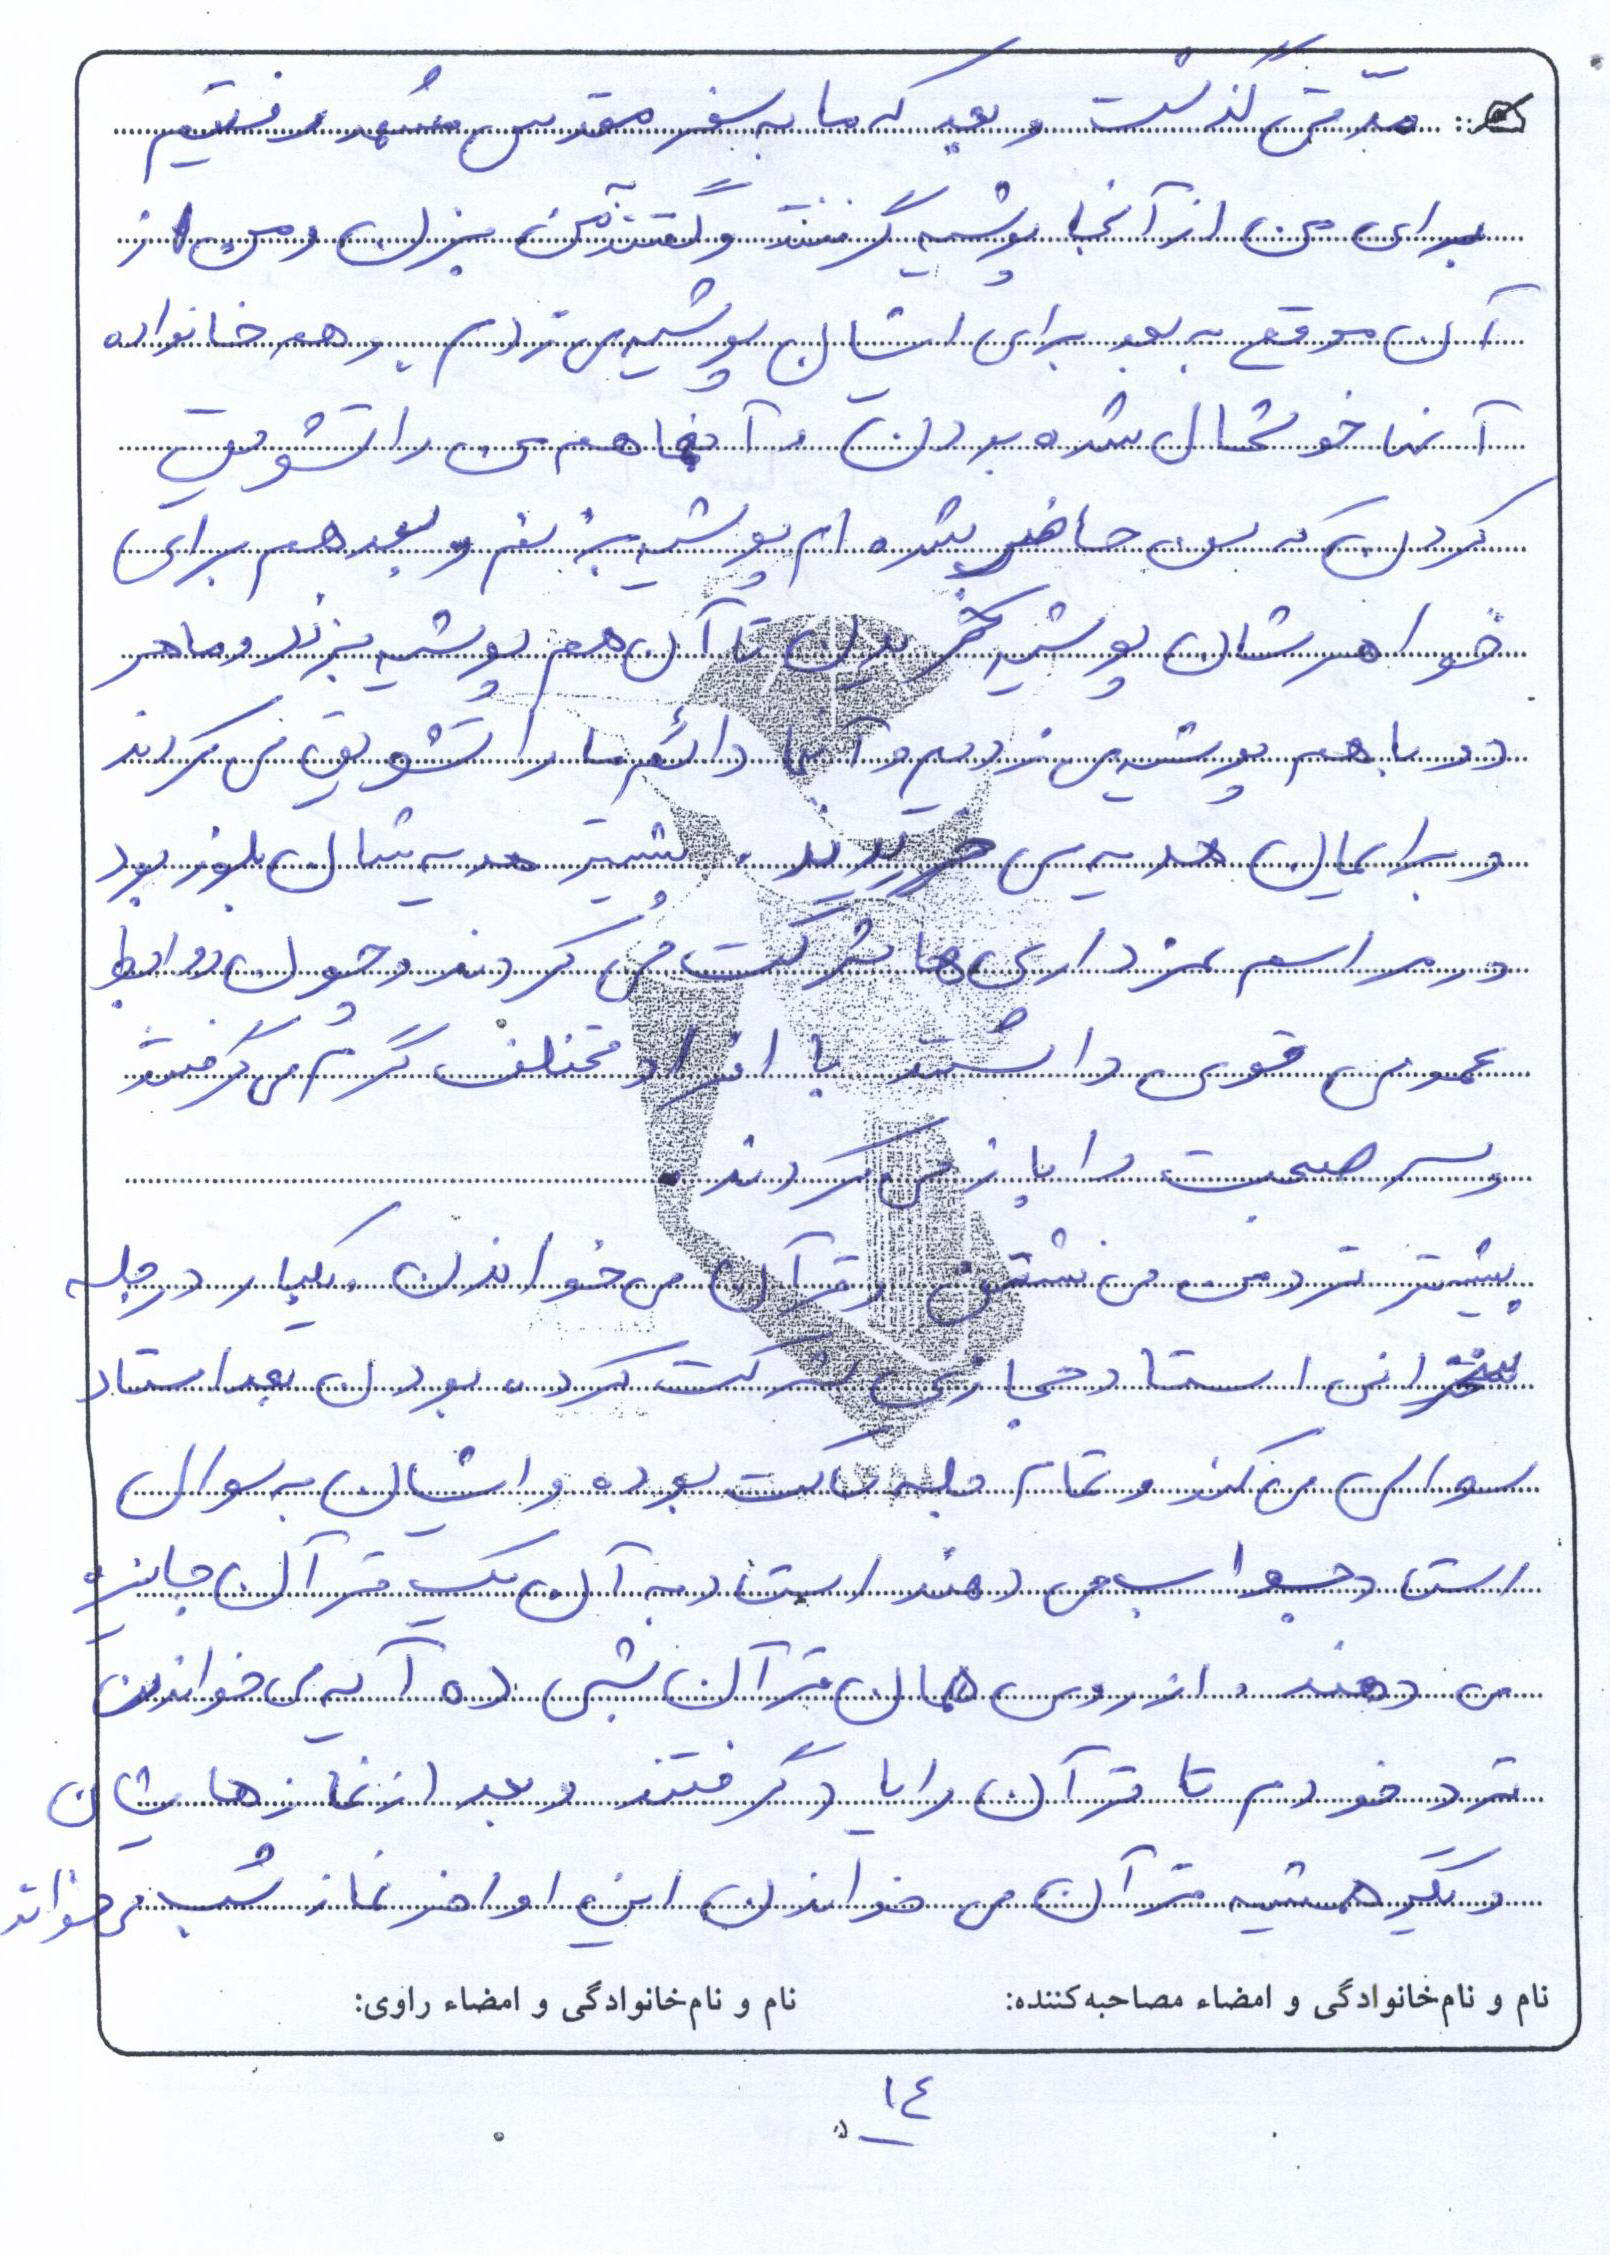 مدّتی گذشت و بعد که ما به سفر مقدس مشهد رفتیم
برای من از آنجا پوشیه گرفتند و گفتند من بزن ومن از
آن موقع به بعد برای ایشان پوشیه می زدم و هم خانواده
آنها خوشحال شده بودن و آنها هم من را تشویق
کردن که من حاضر شده ام پوشیه بزنم و بعد هم برای
خواهرشان پوشیه خریدن تا آن هم پوشیه بزند و ما هر
دو با هم پوشیه می زدیم و آنها دائم ما را تشویق می کردند
و برایمان هدیه می خریدند . بیشتر هدیه یشان بلوز بود
در مراسم عزداری ها شرکت می کردند و چون روابط
عمومی قوی داشتند با افراد مختلف گرم می گرفتند
وسر صحبت را باز می کردند .
بیشتر نزد من می نشتن و قرآن می خواندن . یکبار در جلسه
سخنرانی استاد حجازی شرکت کرده بودن بعد استاد
سوالی می کند و تمام جلسه ساکت بوده و ایشان به سوال
استاد جواب می دهند استاد به آن یک قرآن جایزه
می دهند . از روی همان قرآن شبی ده آیه می خواندن
نزد خودم تا قرآن را یاد گرفتند و بعد از نمازهایشان
دیگر همیشه قرآن می خواندن این اواخر نماز شب می خواند
نام و نام‌خانوادگی و امضاء مصاحبه‌کننده:
نام و نام‌خانوادگی و امضاء راوی:
١٤